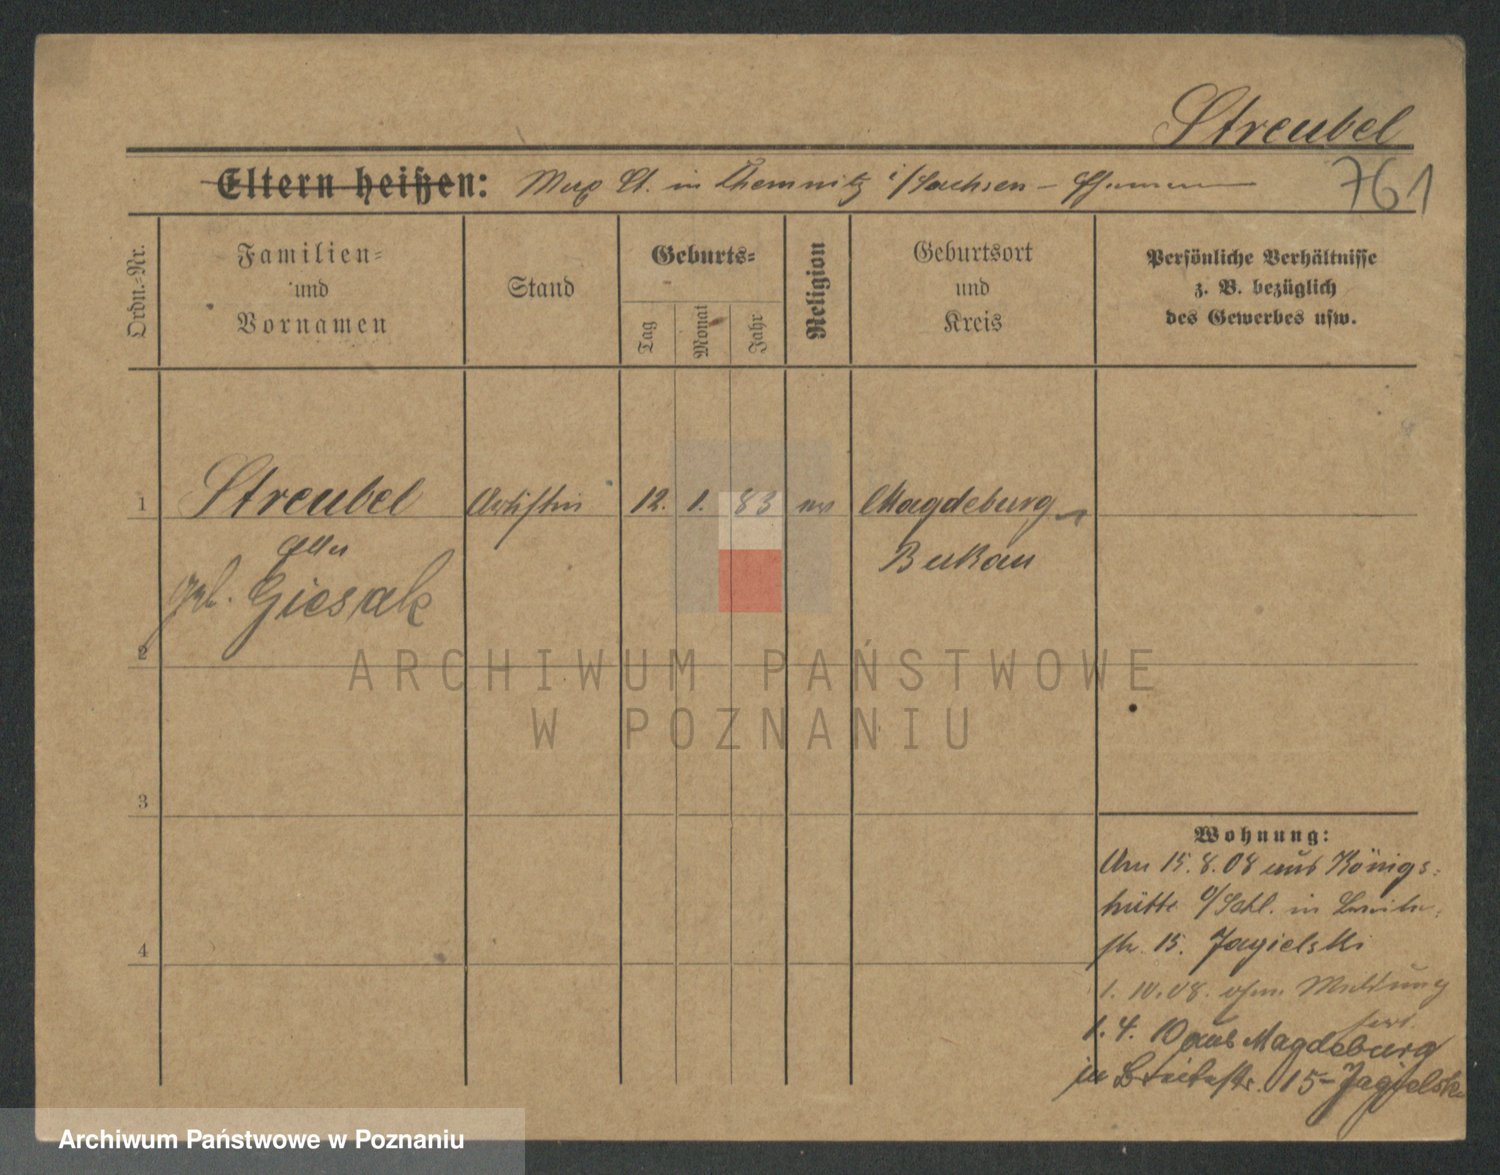 Streubel
Eltern heißen: Max St. in Chemnitz i/Sachsen – Ehemann
761
Ordn.-Nr.
Familien-
und
Vornamen
Stand
Geburts-
Tag
Monat
Jahr
Religion
Geburtsort
und
Kreis
Persönliche Verhältnisse
z. B. bezüglich
des Gewerbes usw.
1 Streubel Artistin 12. 1. 83 ev Magdeburg
Bukau
geb. Giesak
2
3
4
Wohnung:
Am 15.8.08 aus Königs-
hütte O/Schl. in Breite-
str. 15. Jagielski
1.10.08. ohne Meldung
fort
1.4.10 aus Magdeburg
in Breitestr. 15 – Jagielski
ARCHIWUM PAŃSTWOWE
W POZNANIU
Archiwum Państwowe w Poznaniu